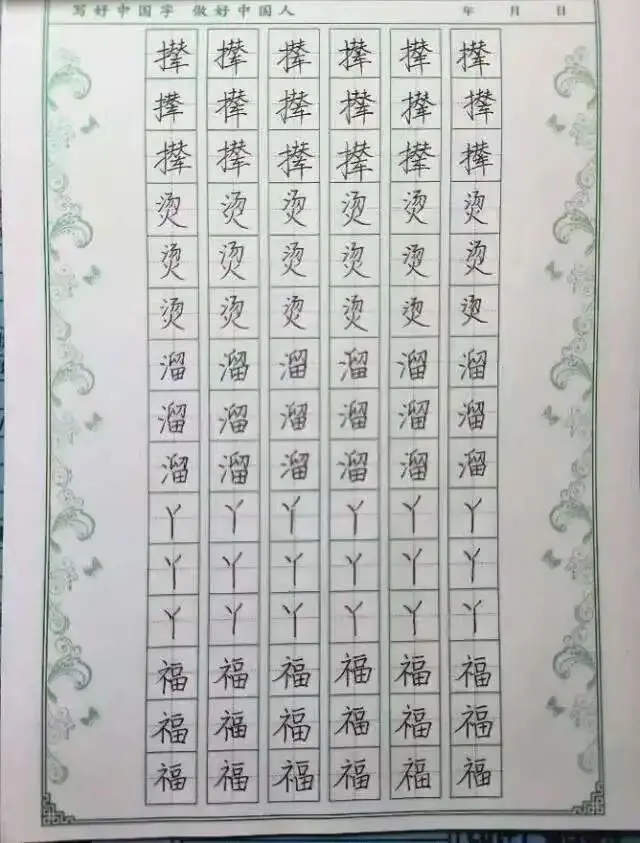 写好中国字 做好中国人 年 月 日
撵 撵 撵 撵 撵 撵
撵 撵 撵 撵 撵 撵
撵 撵 撵 撵 撵 撵
烫 烫 烫 烫 烫 烫
烫 烫 烫 烫 烫 烫
烫 烫 烫 烫 烫 烫
溜 溜 溜 溜 溜 溜
溜 溜 溜 溜 溜 溜
溜 溜 溜 溜 溜 溜
丫 丫 丫 丫 丫 丫
丫 丫 丫 丫 丫 丫
丫 丫 丫 丫 丫 丫
福 福 福 福 福 福
福 福 福 福 福 福
福 福 福 福 福 福